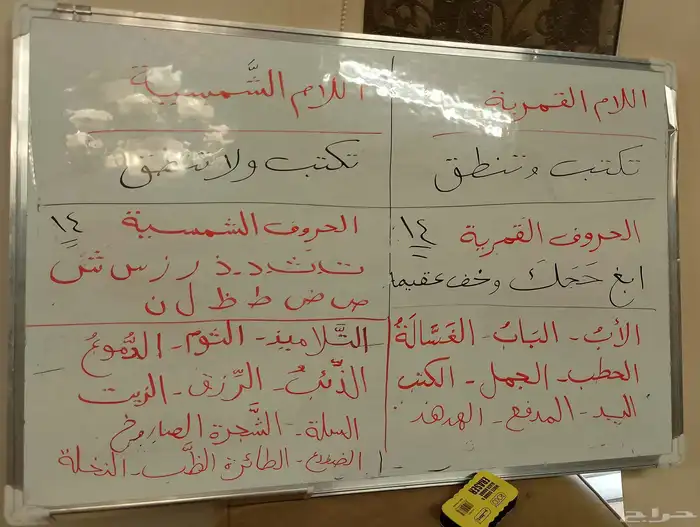 اللام القمرية
تكتب وتنطق
الحروف القمرية ١٤
ابغ حَجَكَ وخف عقيمه
الأبُ - البَابُ - الغَسَّالَةُ
الحطب - الجمل - الكتب
اليد - المدفع - الهدهد
اللام الشَّمسية
تكتب ولا تنطق
الحروف الشمسية ١٤
ت ث د ذ ر ز س ش
ص ض ط ظ ل ن
التَّلاميذ - الثوم - الدُّموعُ
الذِّئبُ - الرِّزق - الزيت
السلة - الشَّجرة الصاروخ
الضلوع - الطائرة الظَّبي - النخلة
حراج